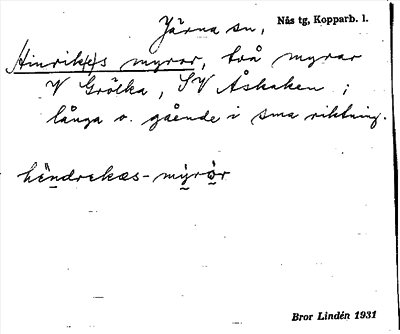 Järna sn, Nås tg, Kopparb. l.
Hinrik(k)s myror, två myrar
V Grölka, SV Åskaken;
långa o. gående i sma riktning.
hëndrekæs-myrör
Bror Lindén 1931